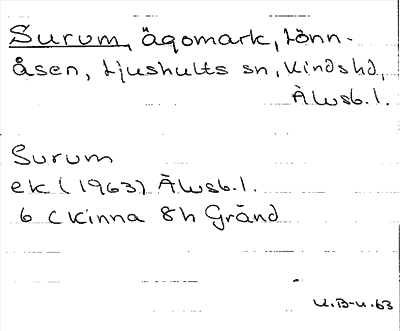 Surum, ägomark, Lönn-
åsen, Ljushults sn, Kinds hd,
Älvsb. l.
Surum
ek (1963) Älvsb. l.
6 C Kinna 8h Gränd
K.B-u. 63